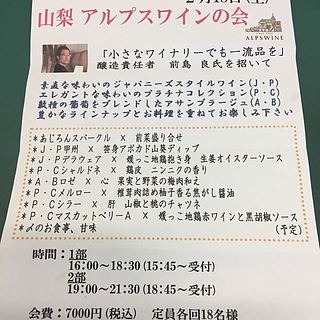 山梨 アルプスワインの会
ALPSWINE
「小さなワイナリーでも一流品を」
醸造責任者 前島 良氏を招いて
素直な味わいのジャパニーズスタイルワイン(J・P)
エレガントな味わいのプラチナコレクション(P・C)
数種の葡萄をブレンドしたアサンブラージュ(A・B)
豊かなラインナップとお料理を重ねてお楽しみ下さい
*あじろんスパークル × 前菜盛り合せ
*J・P甲州 × 笹身アボカド山葵ディップ
*J・Pデラウェア × 媛っこ地鶏抱き身 生姜オイスターソース
*P・Cシャルドネ × 鶏皮 ニンニクの香り
*A・Bロゼ × 心 果実と野菜の梅肉和え
*P・Cメルロー × 椎茸肉詰め柚子香る焦がし醤油
*P・Cシラー × 肝 山椒と桃のチャツネ
*P・CマスカットベリーA × 媛っこ地鶏赤ワインと黒胡椒ソース
*〆のお食事、甘味 (予定)
時間:1部
16:00～18:30(15:45～受付)
2部
19:00～21:30(18:45～受付)
会費:7000円(税込) 定員各回18名様